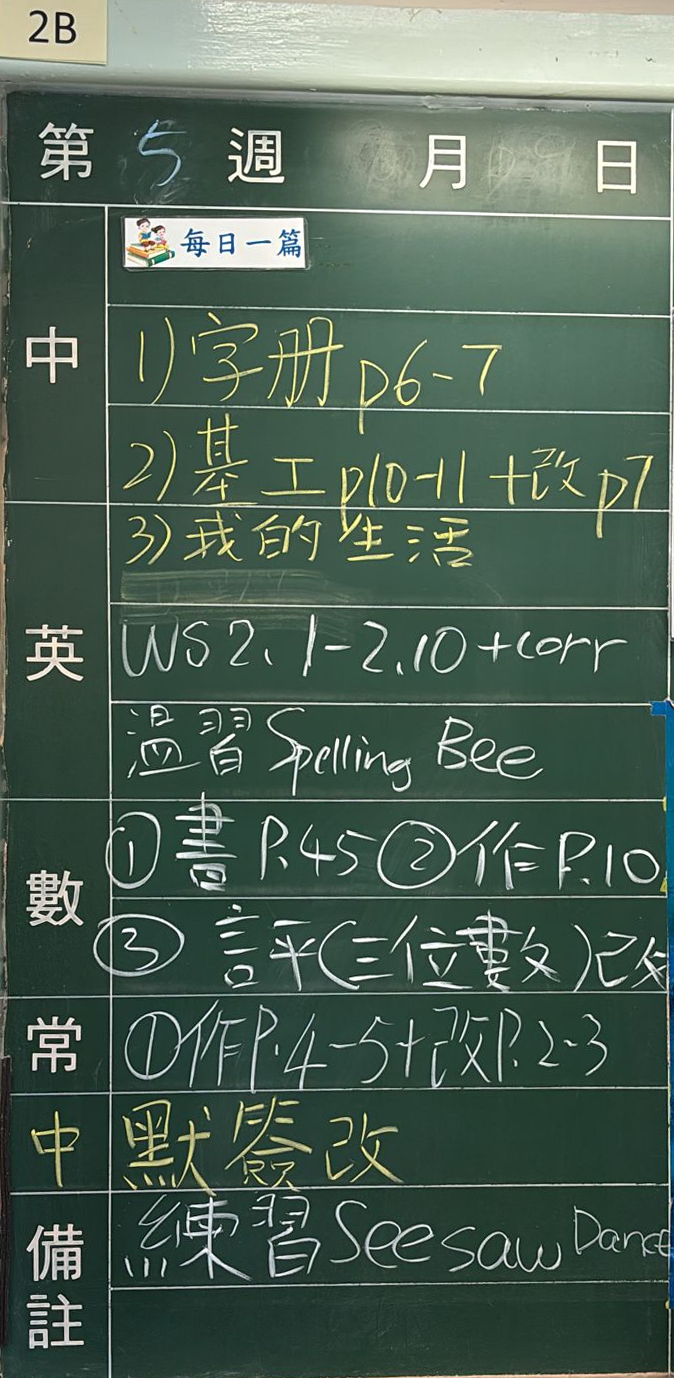 2B
第 5 週 月 日
每日一篇
中
1) 字册 p6-7
2) 基工 p10-11 +改 p7
3) 我的生活
英
WS 2.1-2.10 + corr
溫習 Spelling Bee
數
① 書 P.45 ② 作 P.10
③ 評(三位數)改
常
① 作 P.4-5+改 P.2-3
中 默簽改
備註
練習 Seesaw Dance